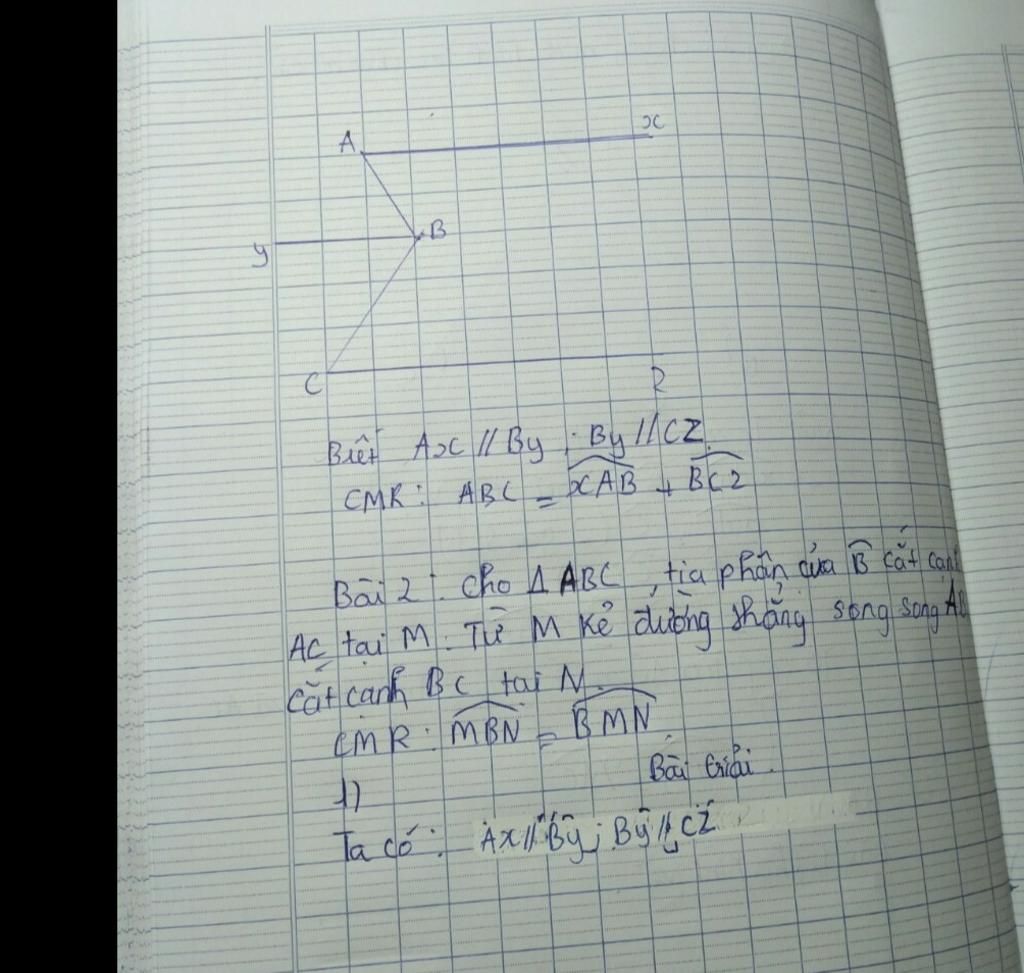 A
x
B
y
C
Z
Biết Ax // By ; By // CZ.
CMR: ABC = xAB + BCZ
Bài 2: Cho Δ ABC, tia phân của B cắt cạnh
AC tại M. Từ M kẻ đường thẳng song song AB
cắt cạnh BC tại N.
CMR: MBN = BMN
Bài giải.
1)
Ta có: Ax // By ; By // CZ